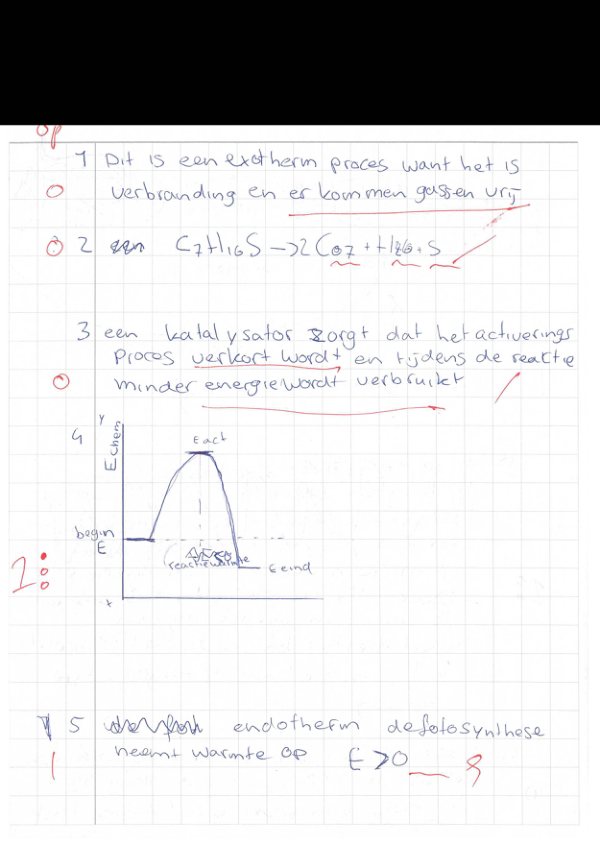 op
1 Dit is een exotherm proces want het is
0 verbranding en er kommen gassen vrij
0 2 C7H16S → 2 CO7 + H26 + S
3 een katalysator zorgt dat het activerings
proces verkort wordt en tijdens de reactie
0 minder energie wordt verbruikt
4 y
E chem
E act
begin
E
reactiewarmte
E eind
x
1
5 endotherm de fotosynthese
neemt warmte op E>0
1